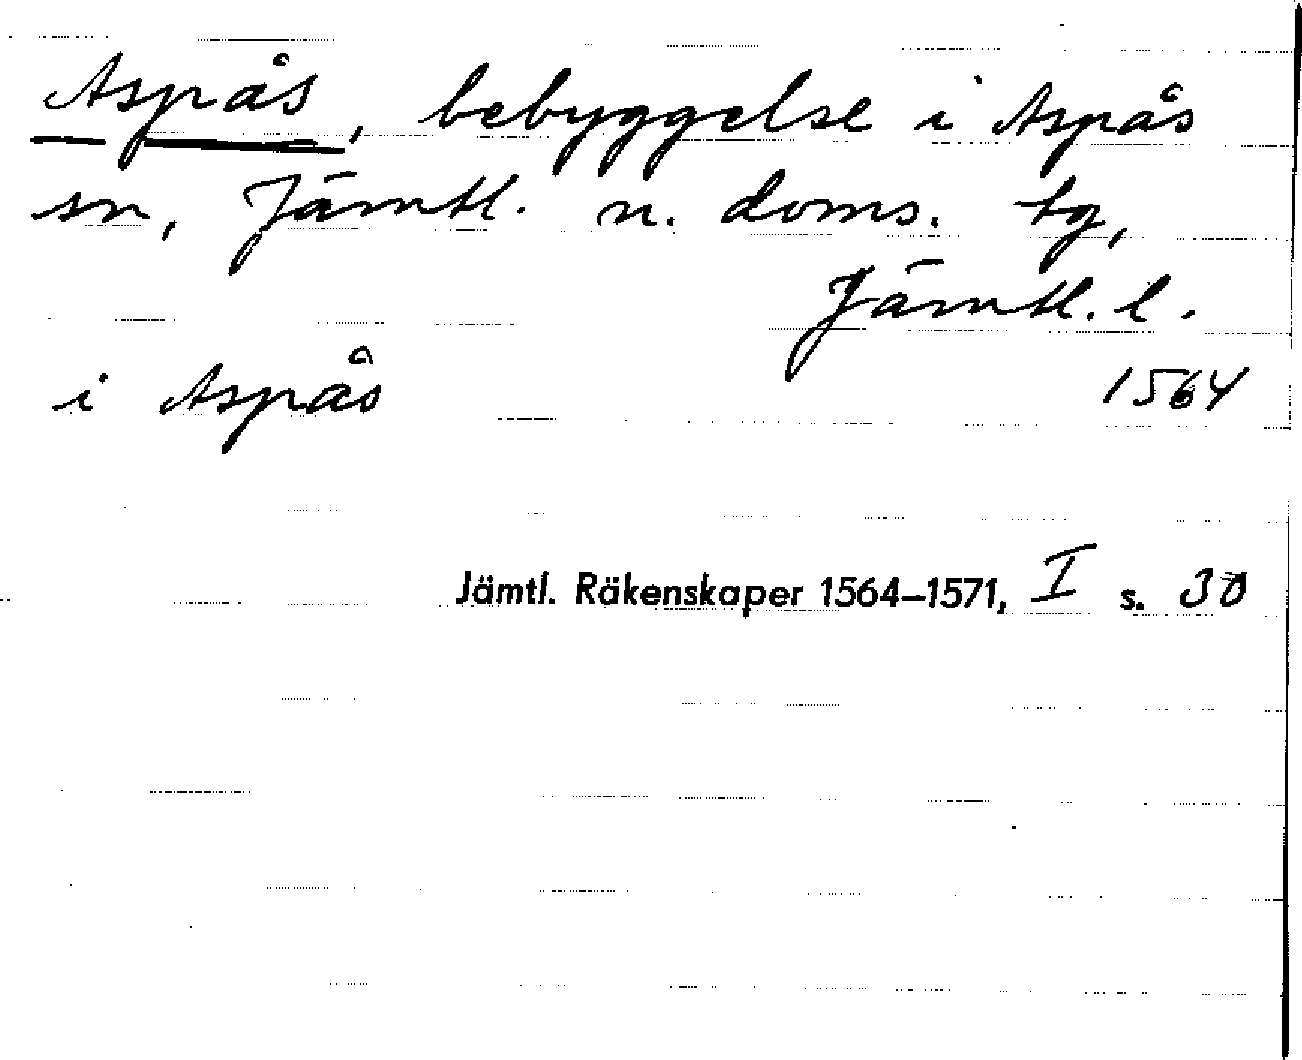 Aspås, bebyggelse i Aspås
sn, Jämtl. n. doms. tg,
Jämtl. l.
i Aspås 1564
Jämtl. Räkenskaper 1564–1571, I s. 30